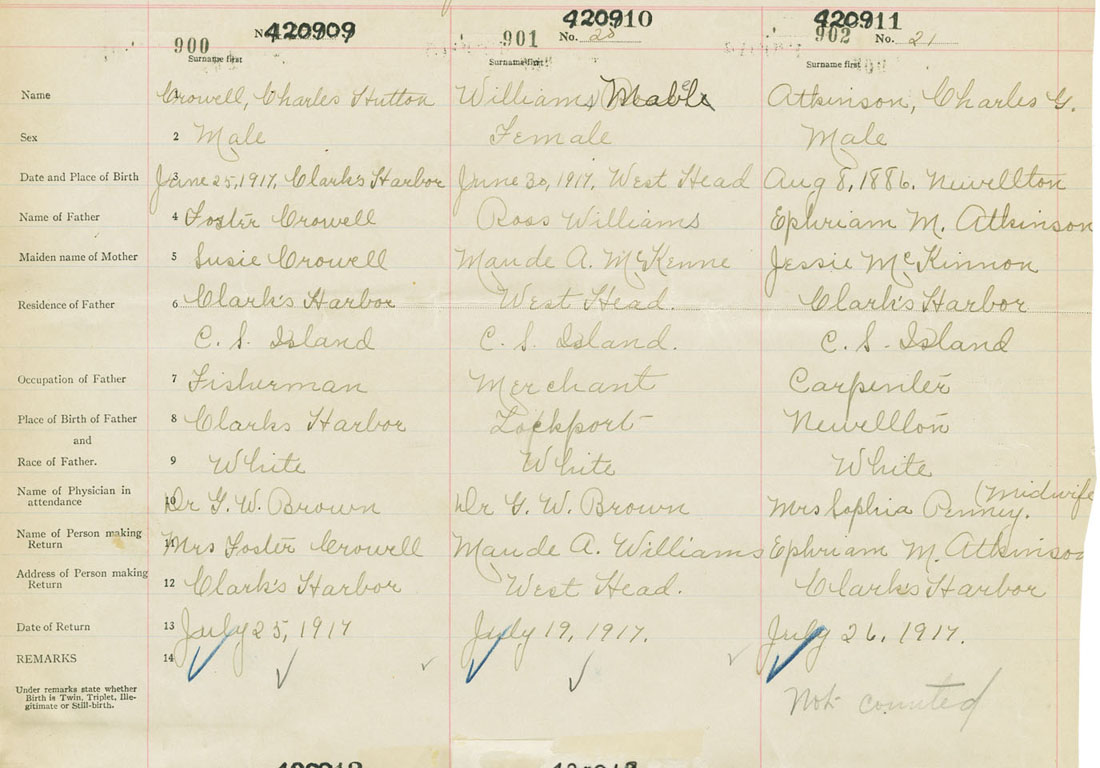 420909 420910 420911
900 901 902
No. No. 20 No. 21
Surname first Surname first Surname first
Name 1 Crowell, Charles Hutton Williams, Mable Atkinson, Charles G.
Sex 2 Male Female Male
Date and Place of Birth 3 June 25, 1917, Clark's Harbor June 30, 1917, West Head Aug 8, 1886. Newellton
Name of Father 4 Foster Crowell Ross Williams Ephriam M. Atkinson
Maiden name of Mother 5 Susie Crowell Maude A. McKenne Jessie McKinnon
Residence of Father 6 Clark's Harbor West Head. Clark's Harbor
C. S. Island C. S. Island. C. S. Island
Occupation of Father 7 Fisherman Merchant Carpenter
Place of Birth of Father 8 Clarks Harbor Lockport Newellton
and
Race of Father. 9 White White White
Name of Physician in
attendance 10 Dr G. W. Brown Dr G. W. Brown Mrs Sophia Penney. (Midwife
Name of Person making
Return 11 Mrs Foster Crowell Maude A. Williams Ephriam M. Atkinson
Address of Person making
Return 12 Clark's Harbor West Head. Clark's Harbor
Date of Return 13 July 25, 1917 July 19, 1917. July 26, 1917.
REMARKS 14
Under remarks state whether
Birth is Twin, Triplet, Ille-
gitimate or Still-birth.
Not counted